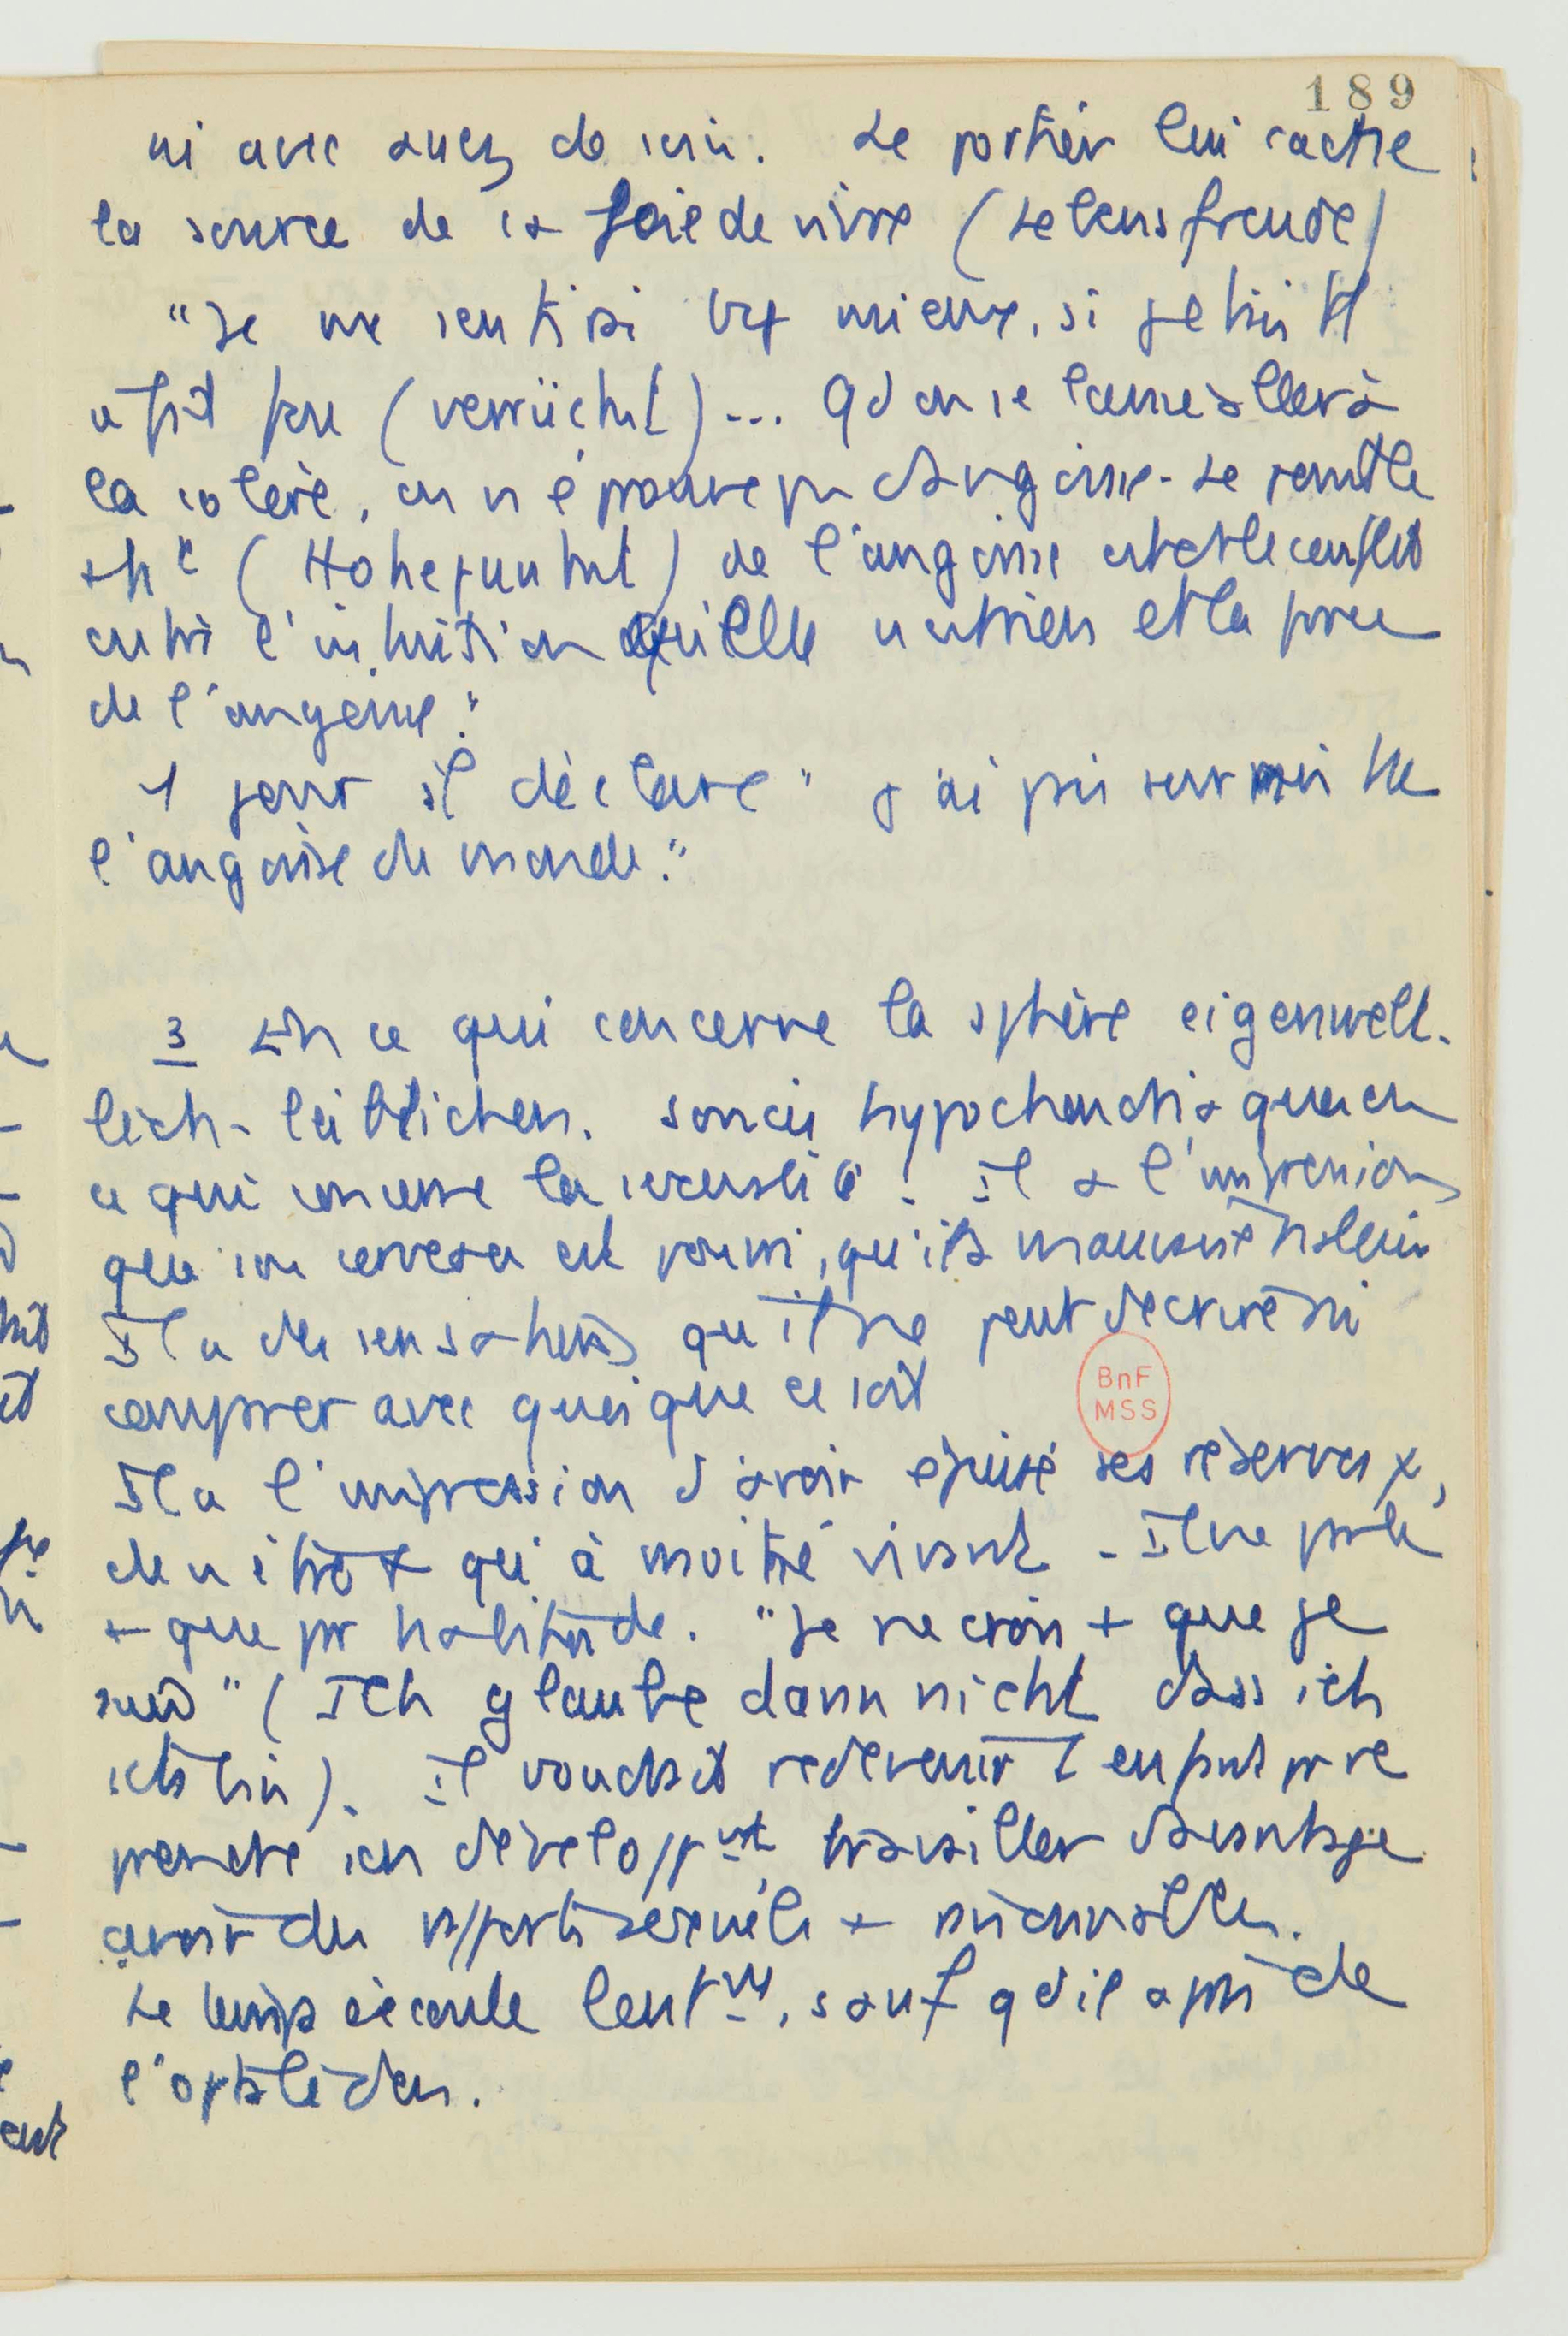 189
ni avec assez de soin. Le portier lui cache
la source de sa Joie de vivre (Lebensfreude)
"Je me sentirai bcp mieux, si je suis tt
à fait fou (verrückt)... Qd on se laisse aller à
la colère, on n'éprouve pas d'angoisse. Le comble
(Hohepunkt) de l'angoisse est et le conflit
entre l'intuition qu'elle n'est rien et la force
de l'angoisse."
1 jour il déclare "j'ai pris sur moi tte
l'angoisse du monde."
3 En ce qui concerne la sphère eigenwelt-
lich-leiblichen. Soucis hypochondriaques en
ce qui concerne la sexualité. Il a l'impression
que son cerveau est pourri, qu'il a mauvaise haleine
Il a des sensations qu'il ne peut décrire ni
comparer avec quoi que ce soit
BnF
MSS
Il a l'impression d'avoir épuisé ses réserves x,
de n'être + qu'à moitié vivant. Il ne parle
+ que pr habitude. "Je ne crois + que je
suis" (Ich glaube dann nicht dass ich
ich bin). Il voudrait redevenir 1 enfant pr re
prendre son développmt, travailler davantage
avoir des rapports sexuels + raisonnables.
Le temps s'écoule lentmt, sauf qd il a pris de
l'optalidon.